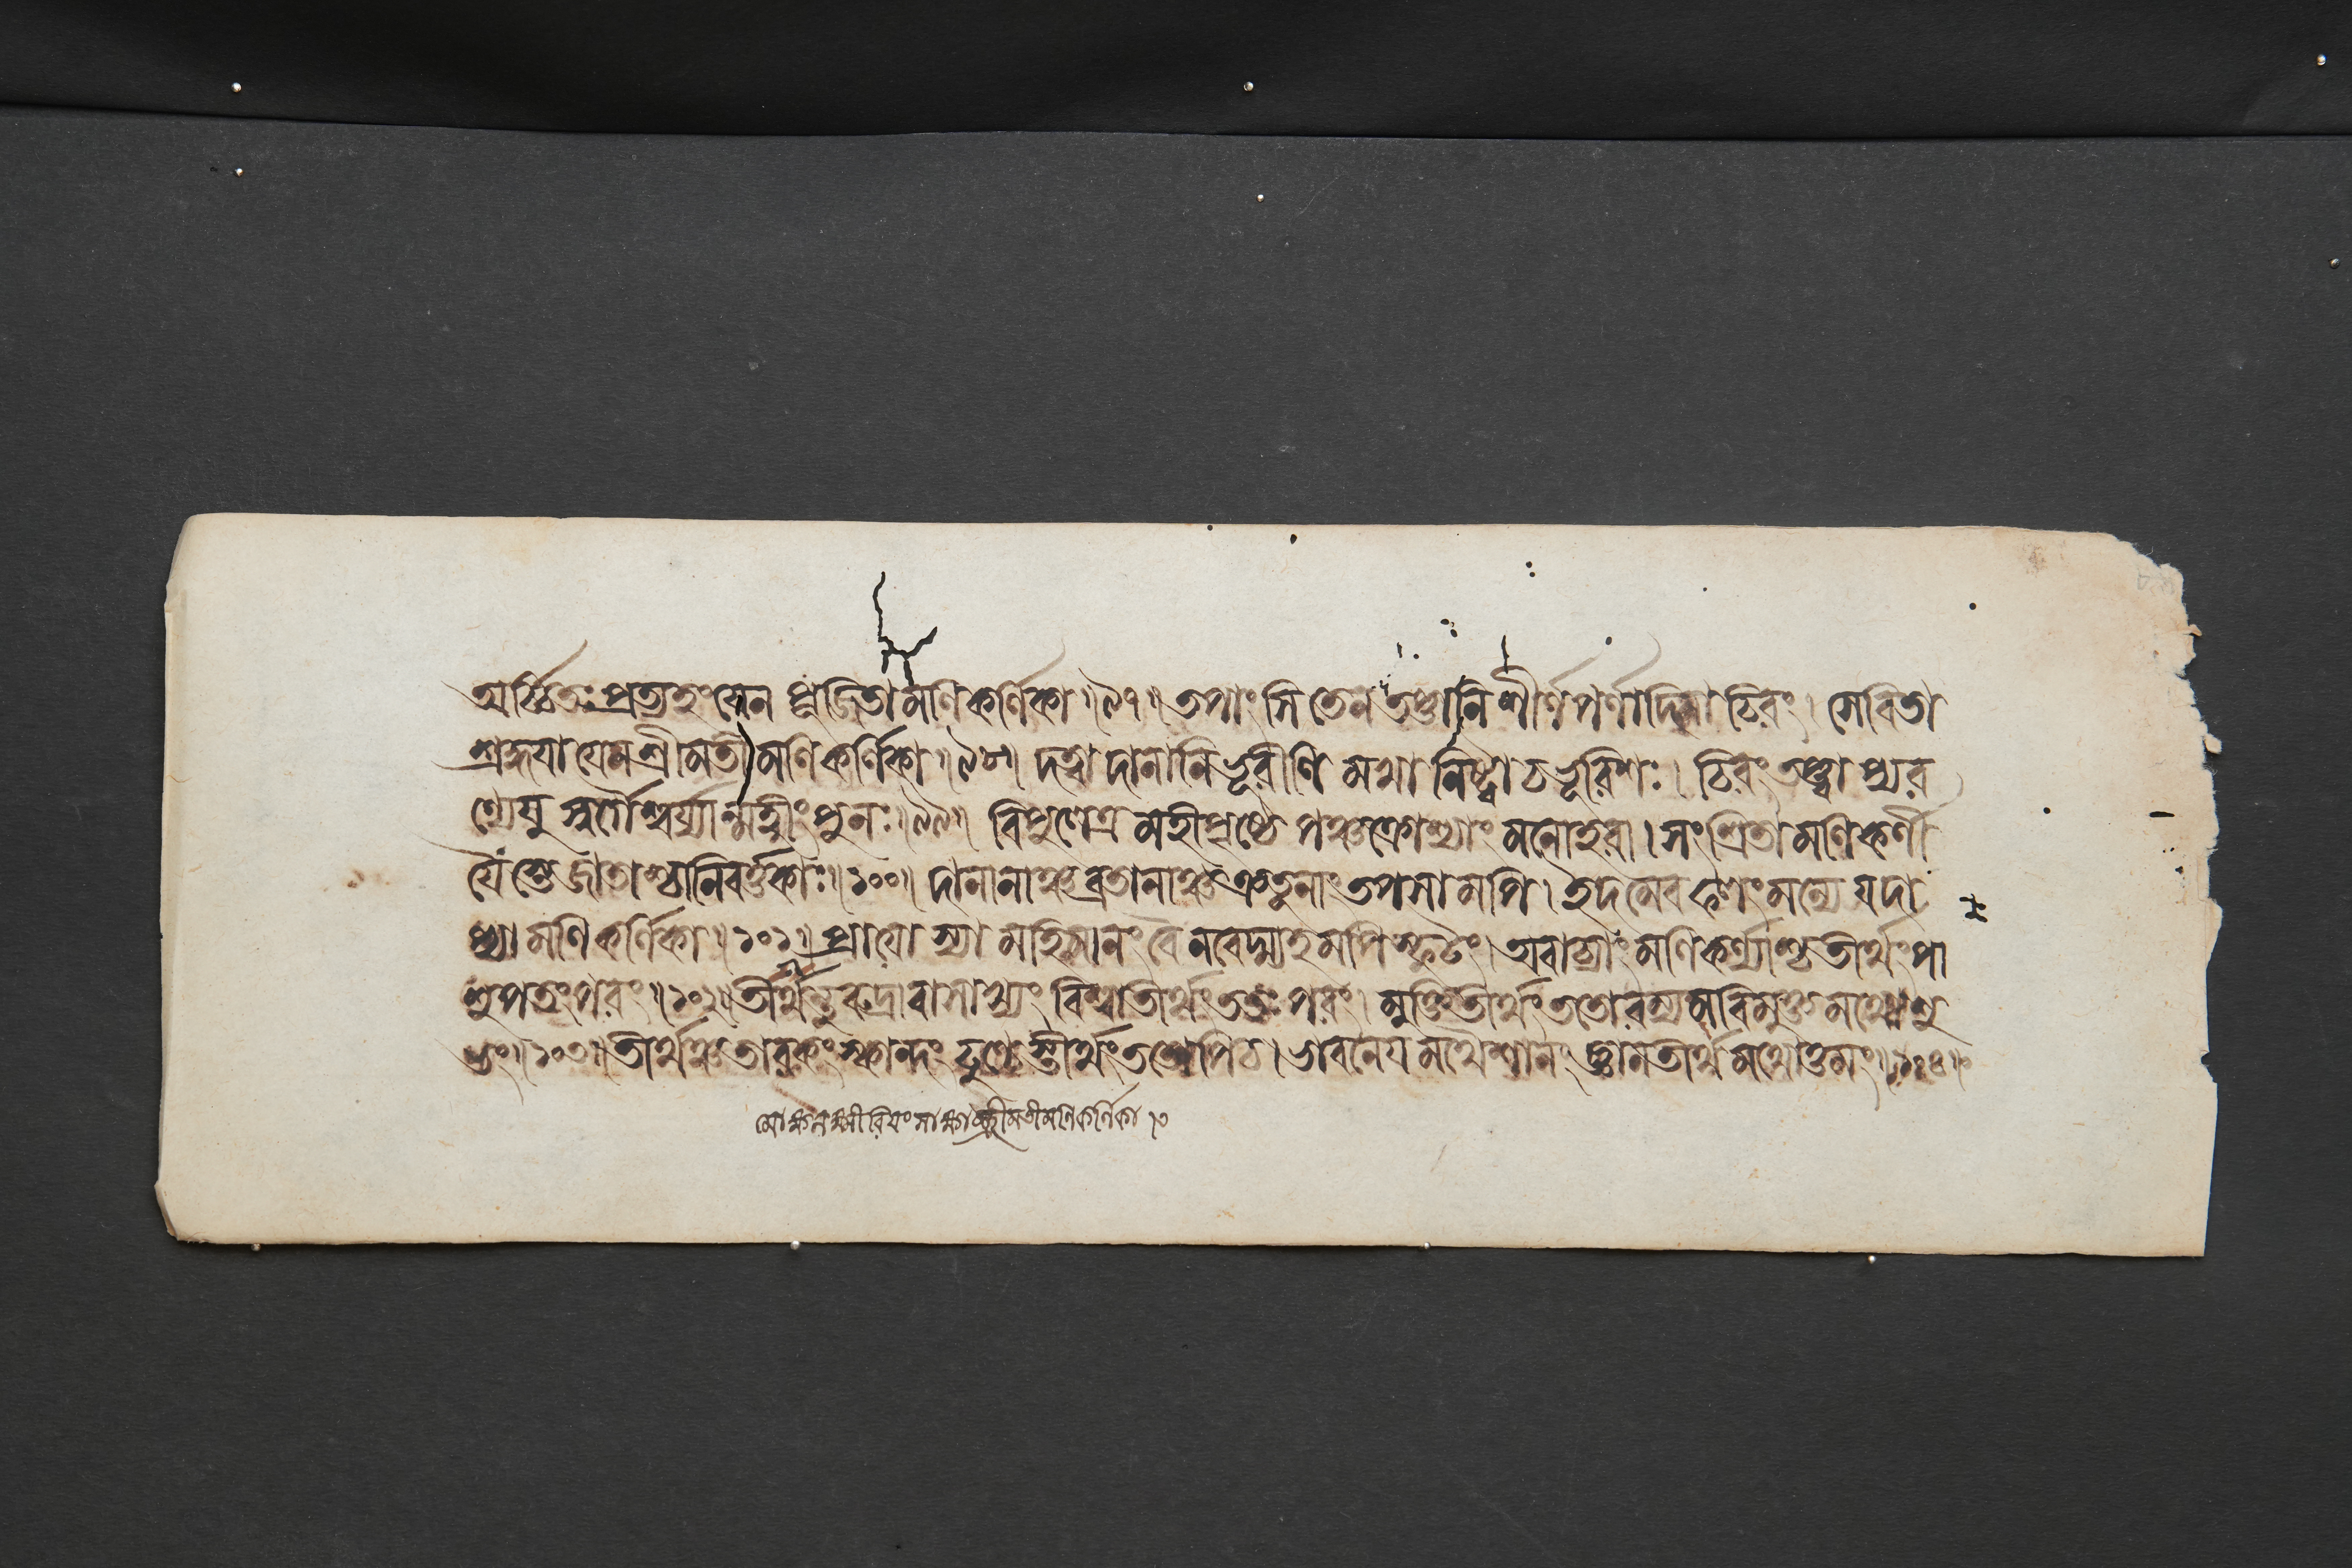 অর্চ্চিতঃ প্রত্যহং যেন পূজিতা মণিকর্ণিকা॥৯৭॥ তপাংসি তেন তপ্তানি শীর্ণপর্ণাদিনা চিরং। সেবিতা
শ্রদ্ধয়া যেন শ্রীমতী মণিকর্ণিকা॥৯৮॥ দত্ত্বা দানানি ভূরীণি মখানিষ্ট্বা চ ভূরিশঃ। চিরং তপ্ত্বাপ্যর
ণ্যেষু স্বর্গৈশ্বর্য্যান্মহীং পুনঃ॥৯৯॥ বিপুলেত্র মহীপৃষ্ঠে পঞ্চক্রোশ্যাং মনোহরা। সংশ্রিতা মণিকর্ণী
যৈস্তে জাতাশ্চানিবর্ত্তকাঃ॥১০০॥ দানানাঞ্চ ব্রতানাঞ্চ ক্রতুনাং তপসামপি। ইদমেব ফলং মন্যে যদা
প্যা মণিকর্ণিকা॥১০১॥ প্রায়োস্যা মহিমানং বৈ নবেদ্ম্যহমপি স্ফুটং। অবাচ্যাং মণিকর্ণ্যাশ্চ তীর্থং পা
শুপতং পরং॥১০২॥ তীর্থন্তু রুদ্রাবাসাখ্যং বিশ্বাতীর্থং ততঃ পরং। মুক্তিতীর্থং ততো রম্যমবিমুক্তমথো শু
ভং॥১০৩॥ তীর্থঞ্চ তারকং স্কান্দং ঢুণ্ঢেস্তীর্থং ততোপি চ। ভবনেয়মথৈশানং জ্ঞানতীর্থমথোত্তমং॥১০৪॥
মোক্ষলক্ষ্মীরিয়ং সাক্ষাচ্ছ্রীমতী মণিকর্ণিকা।৩